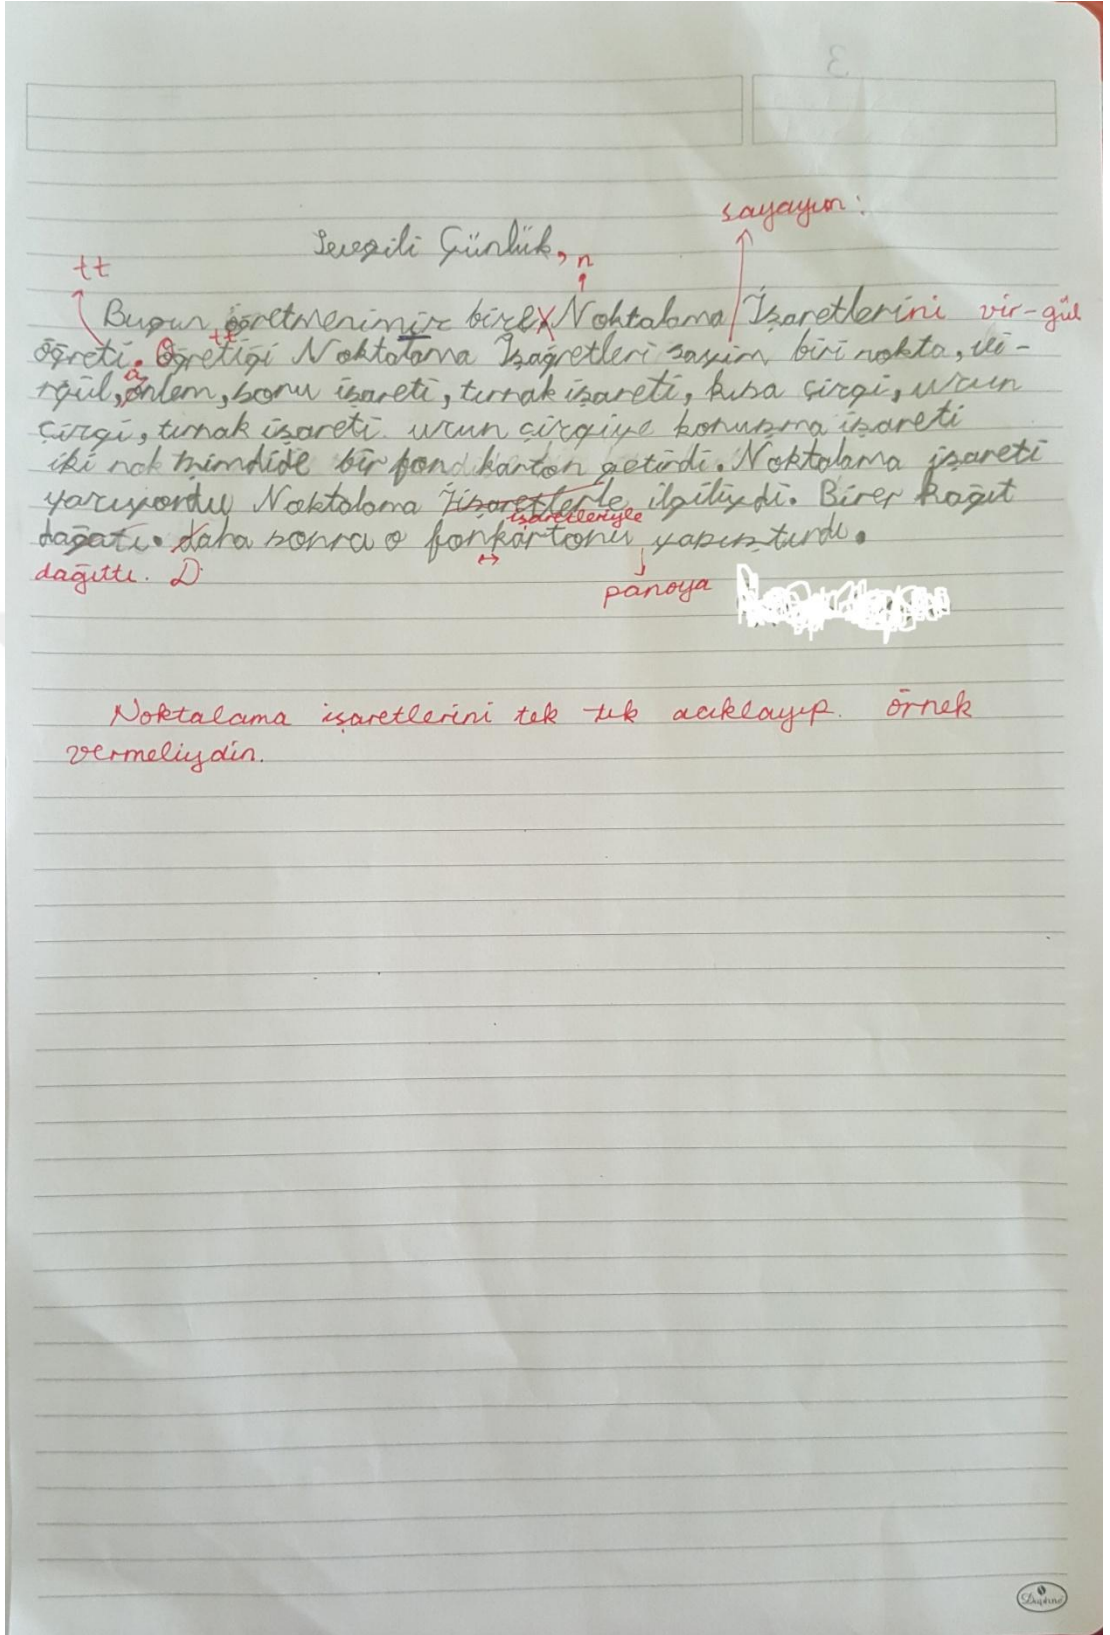 sayayım:
Sevgili Günlük,
tt
n
Bugun öğretmenimiz bize X Noktalama İşaretlerini vir-gül
tt
öğreti. Öğretiği Noktalama İşağretleri sayim, biri nokta, vi-
a
rgül, önlem, soru işareti, tırnak işareti, kısa çizgi, uzun
çizgi, tırnak işareti uzun çizgiye konuşma işareti
iki nok bir fon karton getirdi. Noktalama işareti
yazıyordu Noktalama İişaretlerle ilgiliydi. Birer Kağıt
işaretleriyle
dağatı. daha sonra o fonkartonu yapıştırdı.
dağıttı. D
panoya
Noktalama işaretlerini tek tek acıklayıp. örnek
vermeliydin.
Daphne